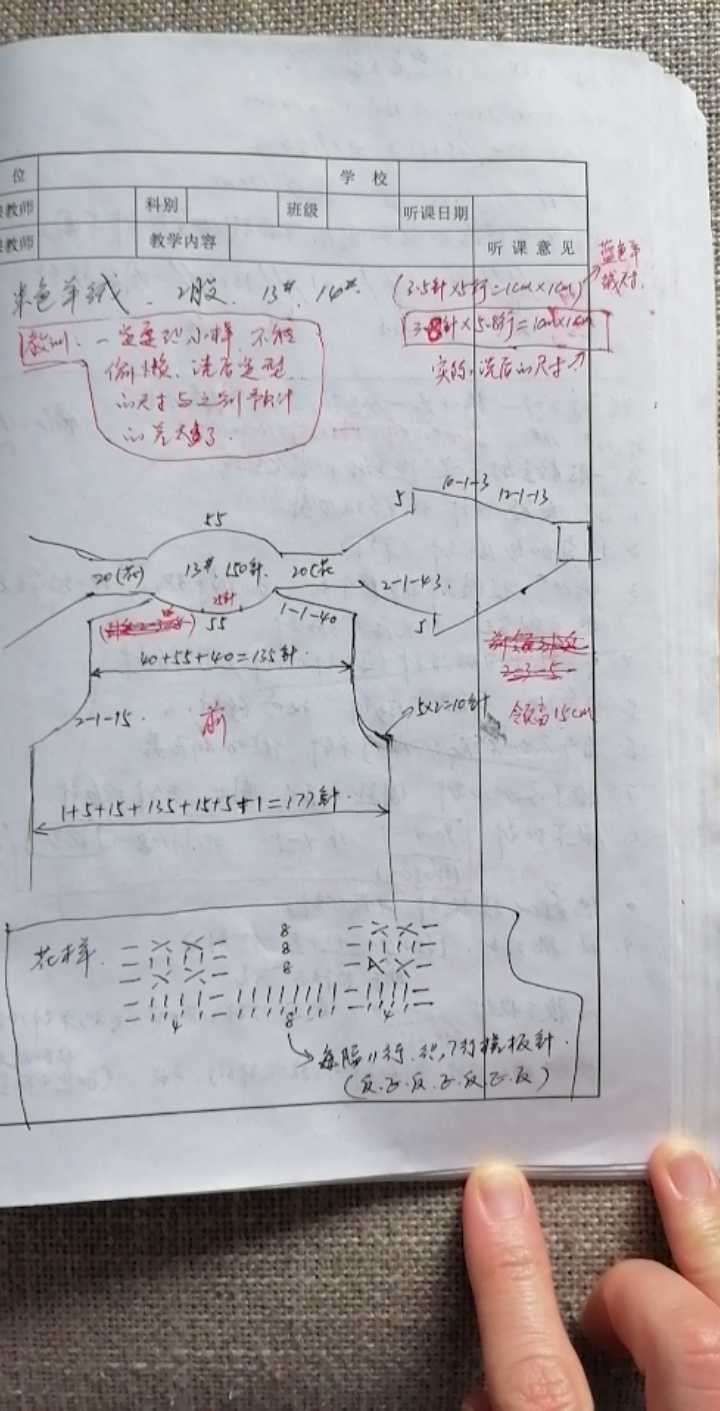 位
学 校
教师
科别
班级
听课日期
教师
教学内容
听 课 意 见
米色羊绒、2股、13#、14#.
(3.5针×5行=1cm×1cm)
蓝色羊
绒尺寸.
教训:一定要织小样,不能
偷懒、洗后定型
的尺寸与之前预计
的差太多了.
3.8针×5.8行=1cm×1cm
实际,洗后的尺寸
55
5
10-1-3
12-1-13
20(花)
13#.150针.
20(花
2-1-43
25针
55
1-1-40
5
2-3-5
40+55+40=135针.
领高15cm
2-1-15.
前
5×2=10针
1+5+15+135+15+5+1=177针.
花样.
8
8
8
4
8
4
每隔11行.织7行搓板针.
(反.正.反.正.反.正.反)